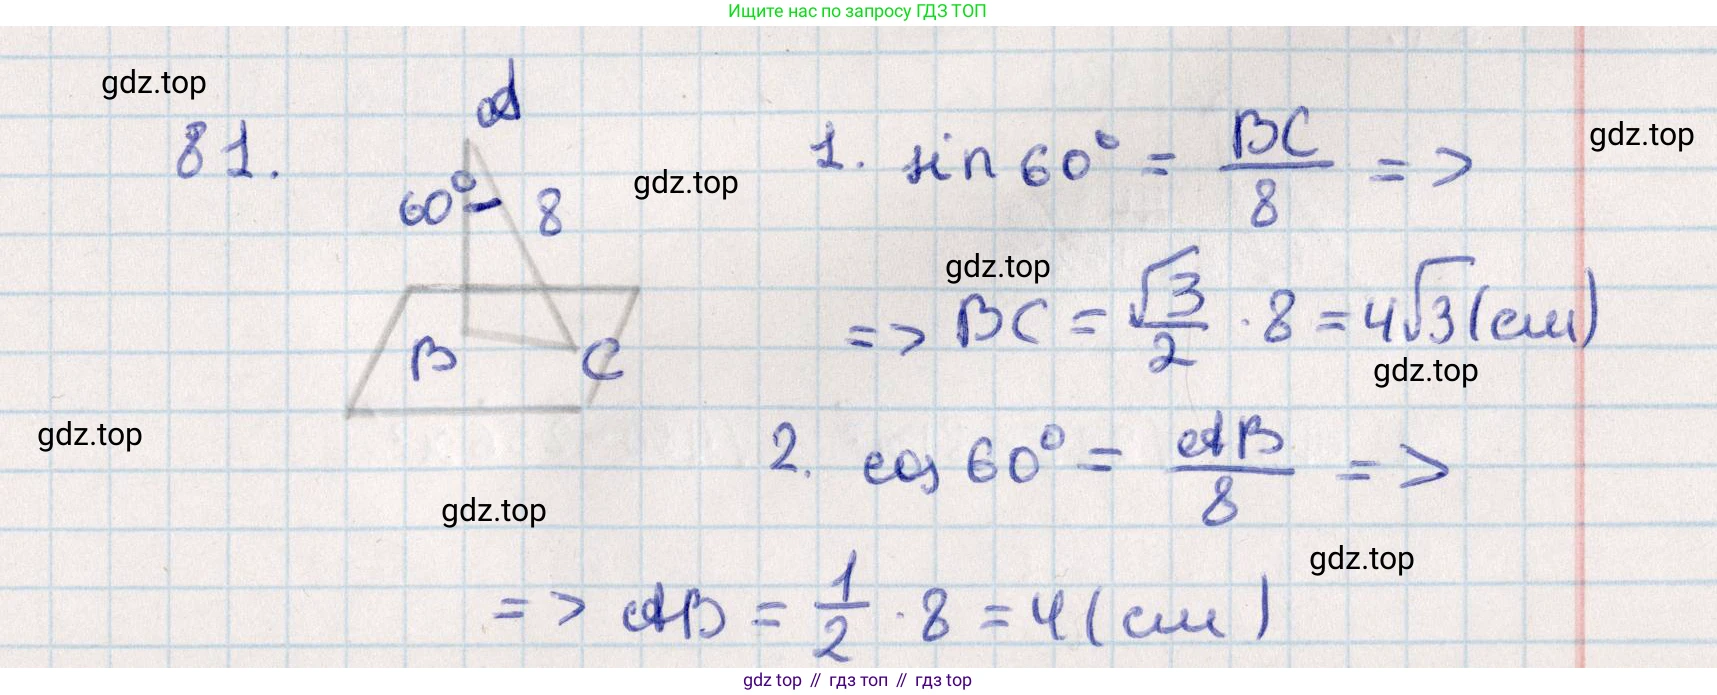 Ищите нас по запросу ГДЗ ТОП
gdz.top
81.
A
60°
8
B
C
gdz.top
1. sin 60° = BC/8 =>
gdz.top
gdz.top
=> BC = √3/2 · 8 = 4√3 (см)
gdz.top
gdz.top
2. cos 60° = AB/8 =>
gdz.top
gdz.top
=> AB = 1/2 · 8 = 4 (см)
gdz.top // гдз топ // гдз top